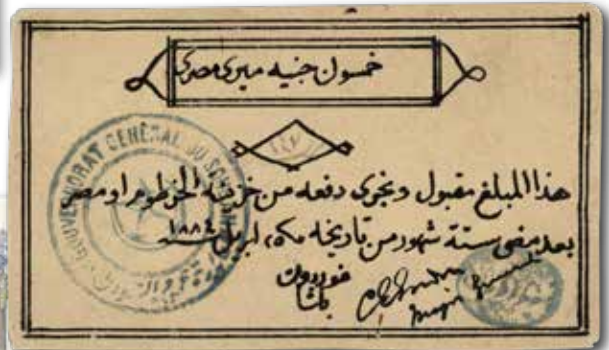 خمسون جنيه ميرى مصرى
هذا المبلغ مقبول ويجرى دفعه من خزينة الخرطوم او مصر
بعد مضى ستة شهور من تاريخه ٢٥ ابريل سنة ١٨٨٤
غوردون
باشا
GOUVERNORAT GÉNÉRAL DU SOUDAN